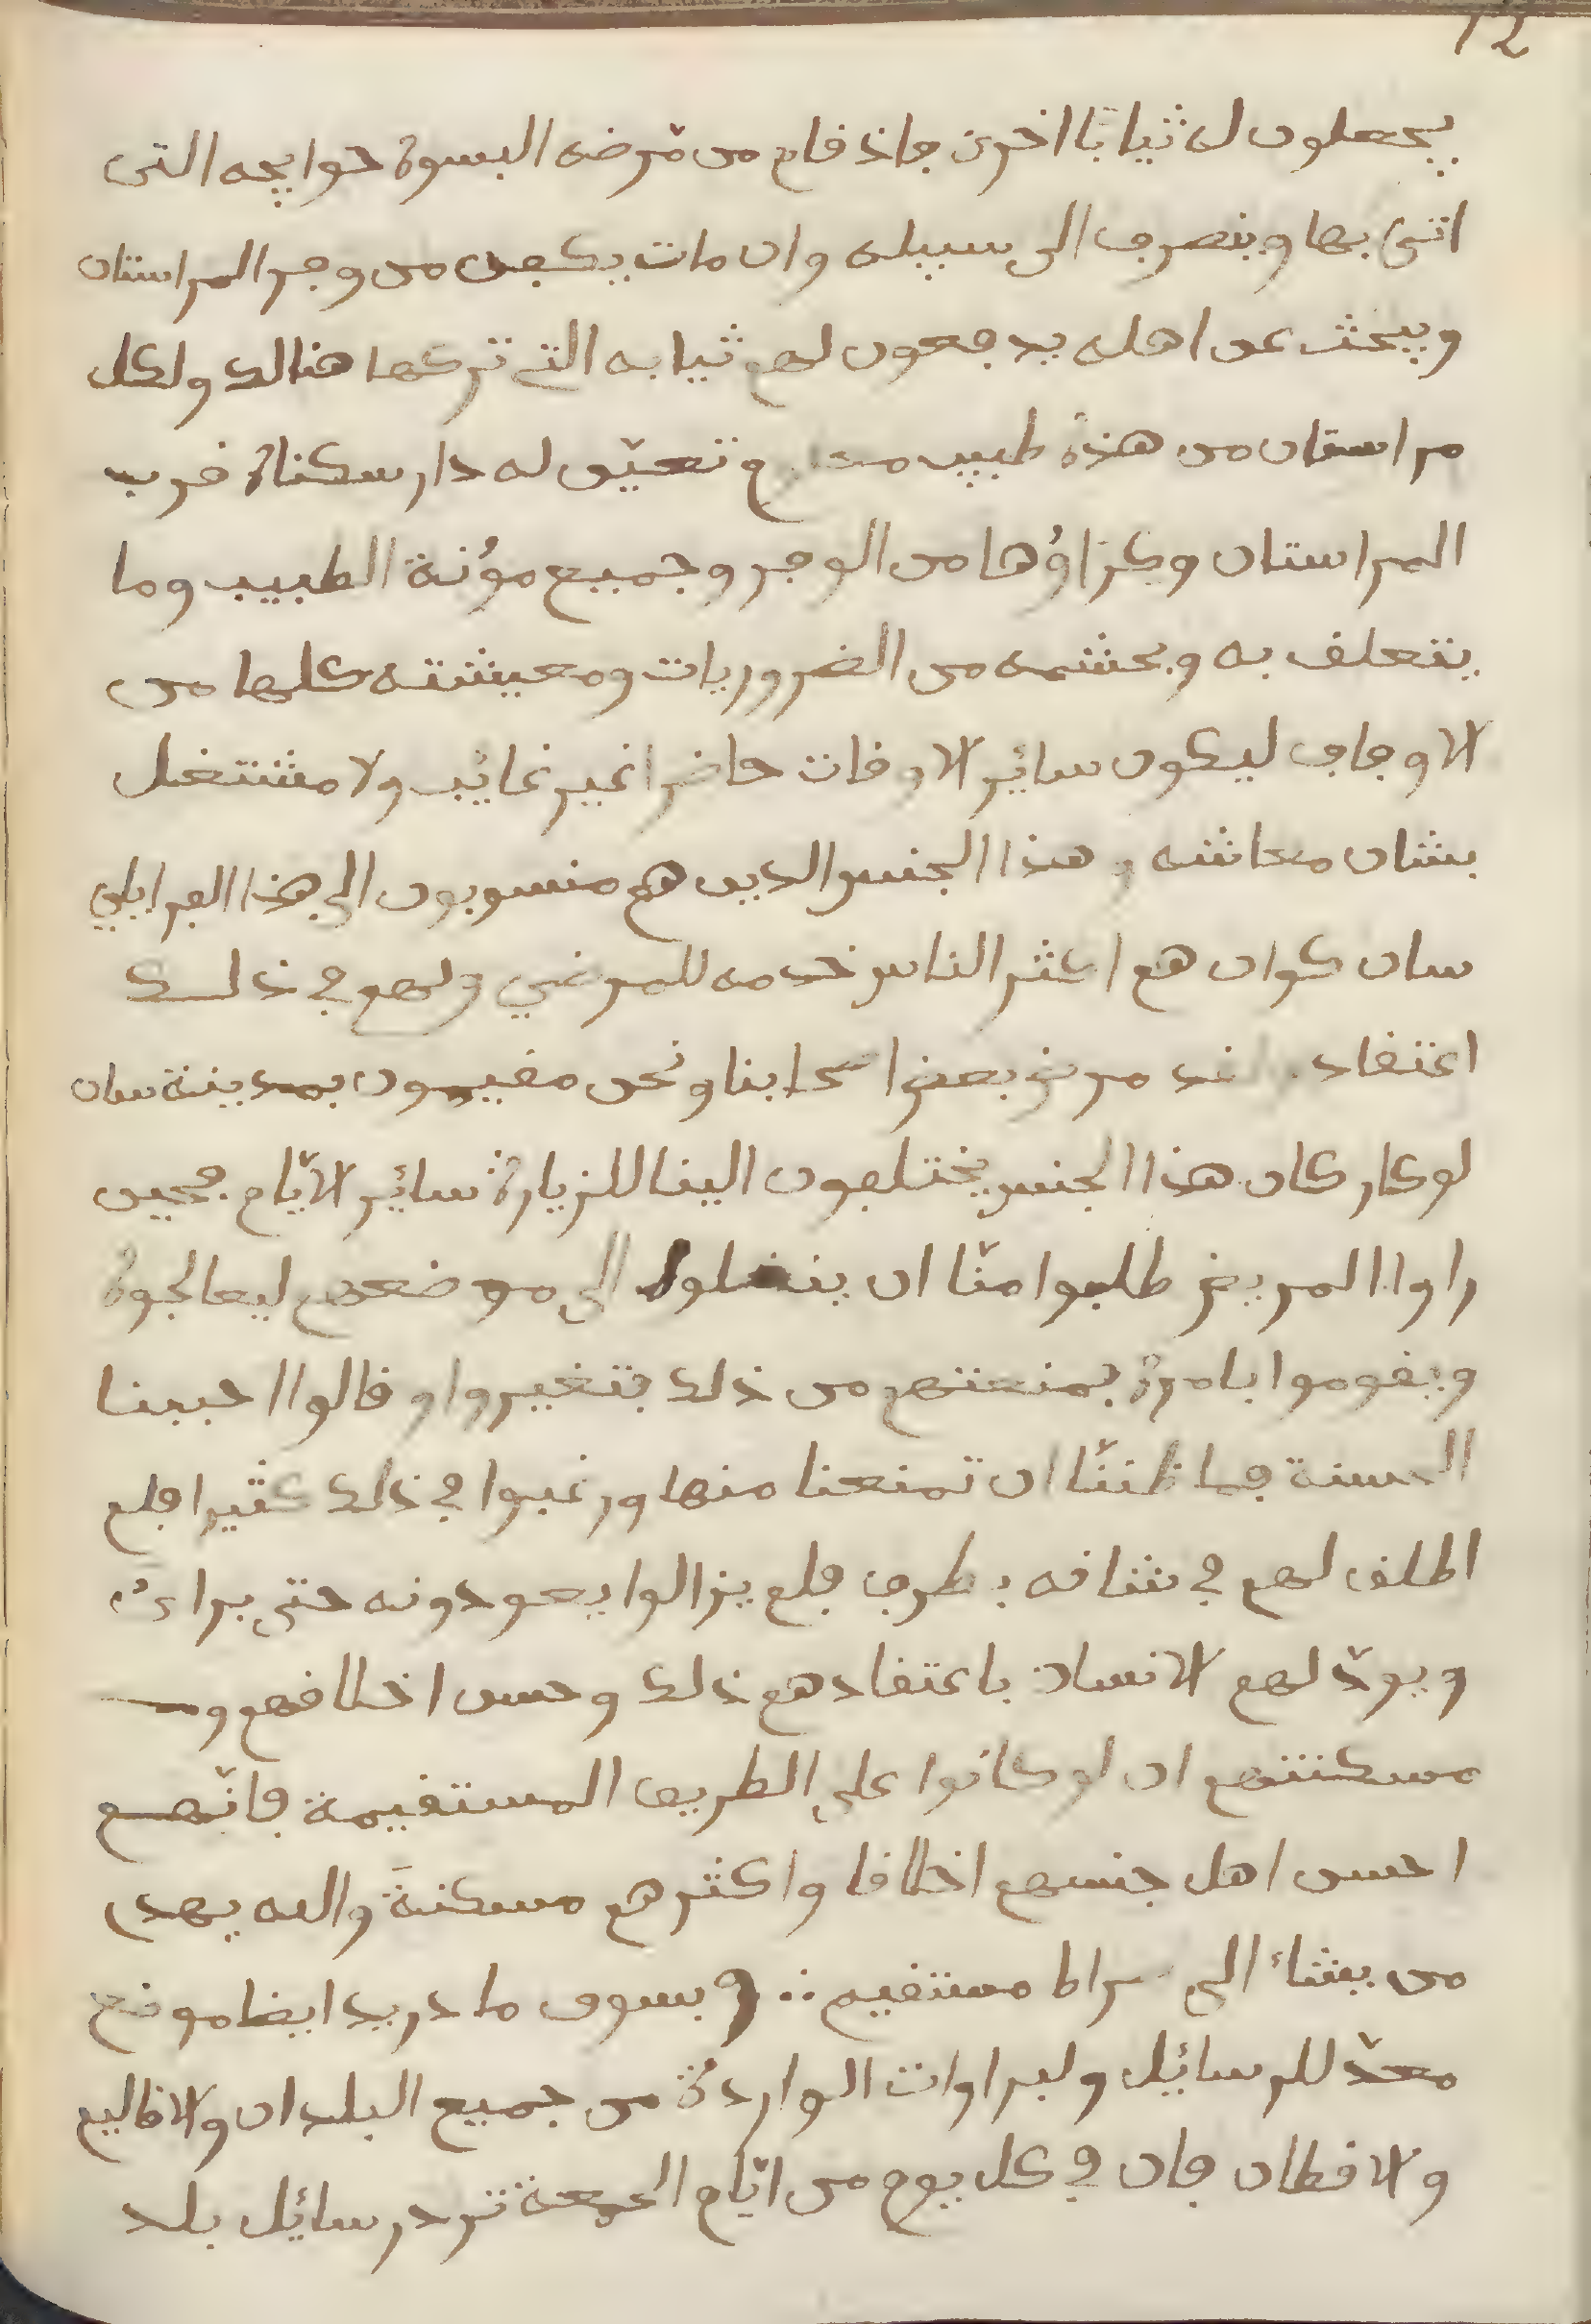 يجعلون له ثيابًا اخرى فاذ قام من مّرضه البسوة حوايجه التى
اتى بها وينصرف الى سبيله وان مات يكفن من وفر المراستان
ويبحث عن اهله يدفعون لهم ثيابه التى تركها هنالك ولكل
مراستان من هذة طبيب تعيّن له دار سكناة قرب
المراستان وكراؤُها من الوفر وجميع موُنة الطبيب وما
يتعلق به وبحشمه من الضروريات ومعيشته كلها من
الاوفاف ليكون سائير الاوقات حاضرا غير غائب ولا مشتغل
بشان معاشه وهذا الجنس الدين هم منسوبون الى هذا الفرايلي
سان كوان هم اكثر الناس خدمه للمرضي ولهم في ذلك
اعتقاد ولقد مرض بعض اصحابنا ونحن مقيمون بمدينة سان
لوكار كان هذا الجنس يختلفون الينا للزيارة سائير الايّام فحين
راوا المريض طلبوا منّا ان ينقلوة الى موضعهم ليعالجوة
ويقوموا بامرة فمنعتهم من ذلك فتغيروا وقالوا احببنا
الحسنة فما ظننّا ان تمنعنا منها ورغبوا في ذلك كثيرا فلم
اطلق لهم في شافه بطرف فلم يزالوا يعودونه حتى براىُ
ويودّ لهم الانسان باعتقادهم ذلك وحسن اخلاقهم و
مسكنتهم ان لو كانوا على الطريق المستقيمة فانّهم
احسن اهل جنسهم اخلاقا واكثرهم مسكنةَ والله يهدى
من يشاء الى سراط مستقيم ∴ وبسوق مادريد ايضا موضع
معدّ للرسائيل ولبراوات الواردة من جميع البلدان والاقاليم
والاقطان فان في كل يوم من ايّام الجمعة ترد رسائيل بلد